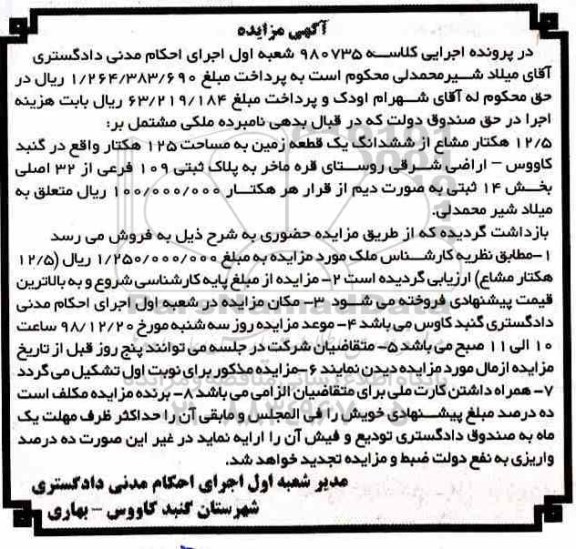 آگهی مزایده
در پرونده اجرایی کلاسه ۹۸۰۷۳۵ شعبه اول اجرای احکام مدنی دادگستری
آقای میلاد شیرمحمدلی محکوم است به پرداخت مبلغ ۱/۲۶۴/۳۸۳/۶۹۰ ریال در
حق محکوم له آقای شهرام اودک و پرداخت مبلغ ۶۳/۲۱۹/۱۸۴ ریال بابت هزینه
اجرا در حق صندوق دولت که در قبال بدهی نامبرده ملکی مشتمل بر:
۱۲/۵ هکتار مشاع از ششدانگ یک قطعه زمین به مساحت ۱۲۵ هکتار واقع در گنبد
کاووس – اراضی شرقی روستای قره ماخر به پلاک ثبتی ۱۰۹ فرعی از ۳۲ اصلی
بخش ۱۴ ثبتی به صورت دیم از قرار هر هکتار ۱۰۰/۰۰۰/۰۰۰ ریال متعلق به
میلاد شیر محمدلی.
بازداشت گردیده که از طریق مزایده حضوری به شرح ذیل به فروش می رسد
۱-مطابق نظریه کارشناس ملک مورد مزایده به مبلغ ۱/۲۵۰/۰۰۰/۰۰۰ ریال (۱۲/۵
هکتار مشاع) ارزیابی گردیده است ۲- مزایده از مبلغ پایه کارشناسی شروع و به بالاترین
قیمت پیشنهادی فروخته می شود ۳- مکان مزایده در شعبه اول اجرای احکام مدنی
دادگستری گنبد کاوس می باشد ۴- موعد مزایده روز سه شنبه مورخ ۹۸/۱۲/۲۰ ساعت
۱۰ الی ۱۱ صبح می باشد ۵- متقاضیان شرکت در جلسه می توانند پنج روز قبل از تاریخ
مزایده از مال مورد مزایده دیدن نمایند ۶-مزایده مذکور برای نوبت اول تشکیل می گردد
۷- همراه داشتن کارت ملی برای متقاضیان الزامی می باشد ۸- برنده مزایده مکلف است
ده درصد مبلغ پیشنهادی خویش را فی المجلس و مابقی آن را حداکثر ظرف مهلت یک
ماه به صندوق دادگستری تودیع و فیش آن را ارایه نماید در غیر این صورت ده درصد
واریزی به نفع دولت ضبط و مزایده تجدید خواهد شد.
مدیر شعبه اول اجرای احکام مدنی دادگستری
شهرستان گنبد کاووس – بهاری